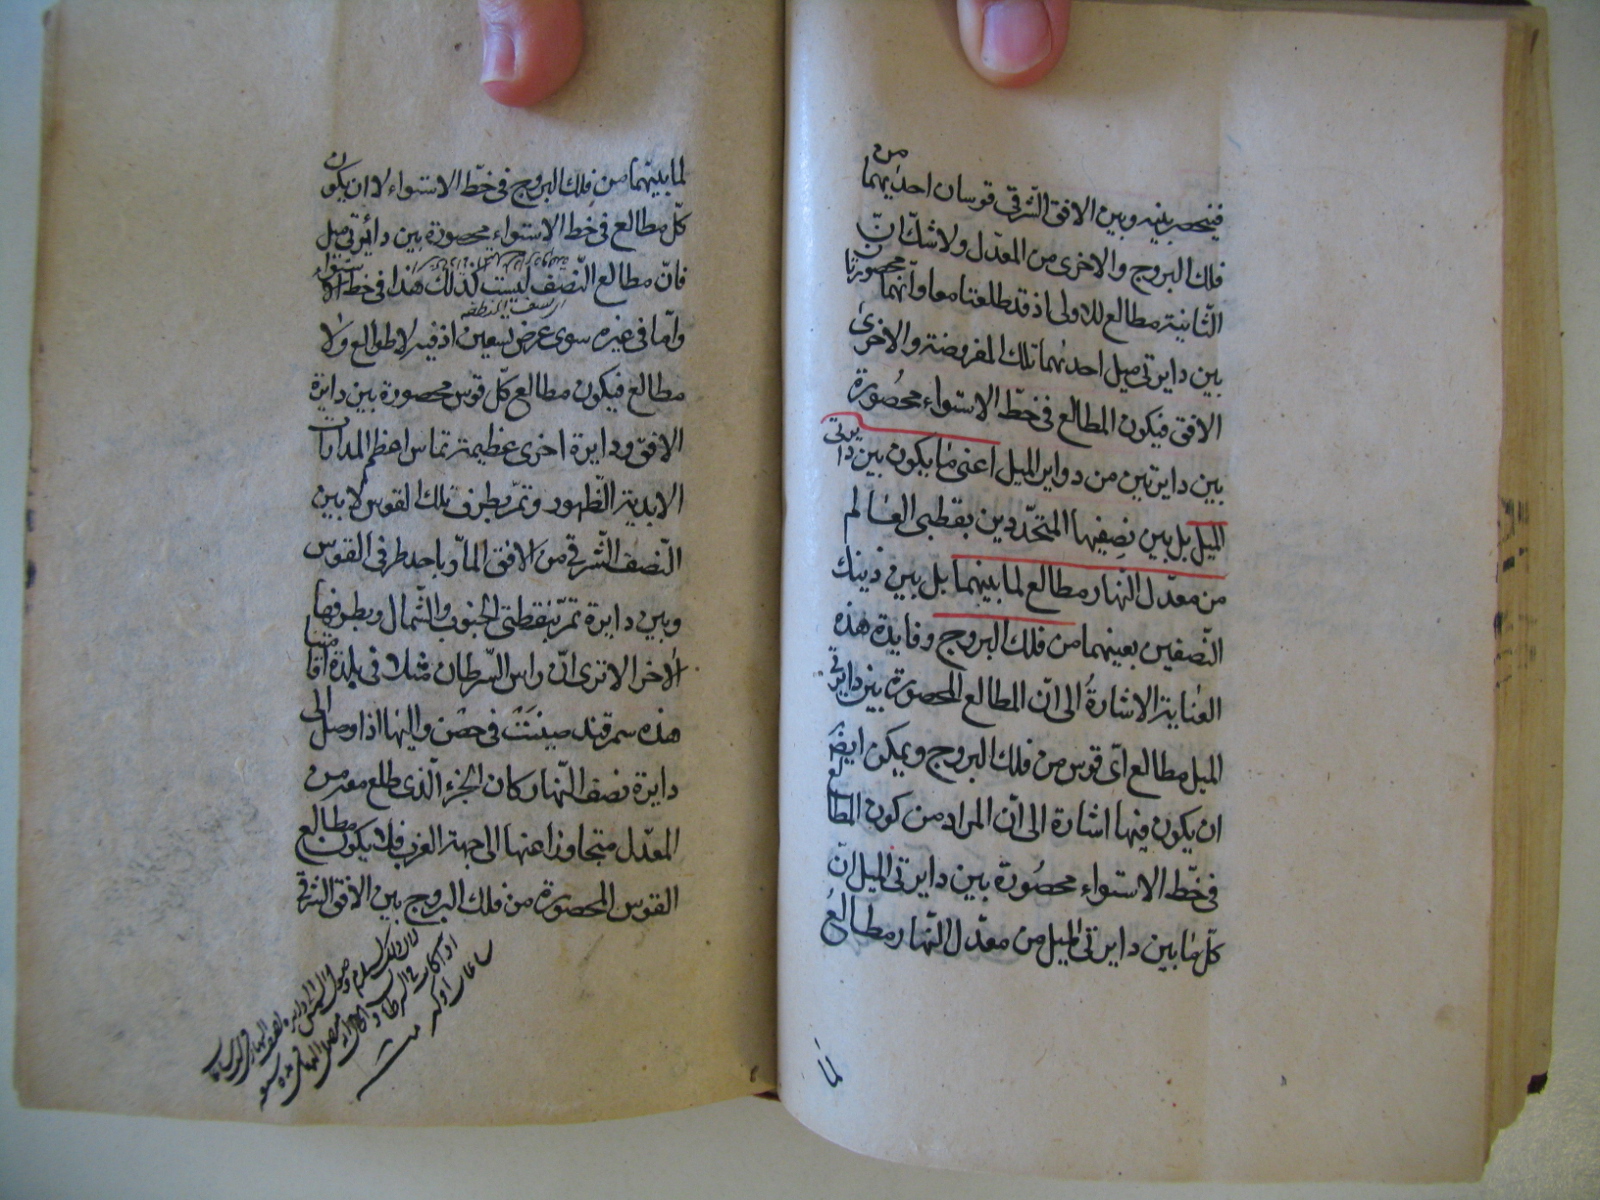 فينحصر بينه وبين الافق الشرقى قوسان احديهما من
فلك البروج والاخرى من المعدّل ولا شك انّ
الثانية مطالع للاولى اذ قد طلعتا معا وانهما محصورتا
بين دايرتى ميل احديهما تلك المفروضة والاخرى
الافق فيكون المطالع فى خطّ الاستواء محصورة
بين دايرتين من دواير الميل اعنى ما يكون بين دايرتى
الميل بل بين نصفيها المتحدّدين بقطبى العالم
من معدّل النهار مطالع لما بينهما بل بين ذينك
النّصفين بعينهما من فلك البروج وفايدة هذه
العناية الاشارة الى انّ المطالع المحصورة بين دايرتى
الميل مطالع اىّ قوس من فلك البروج ويمكن ايضا
ان يكون فيها اشارة الى انّ المراد من كون المطالع
فى خطّ الاستواء محصورة بين دايرتى الميل انّ
كلّ ما بين دايرتى الميل من معدّل النّهار مطالع
لما
لما بينهما من فلك البروج فى خطّ الاستواء لا ان يكون
كلّ مطالع فى خط الاستواء محصورة بين دائرتى ميل
فانّ مطالع النّصف ليست كذلك هذا فى خط الاستواء
وامّا فى غيره سوى عرض تسعين اذ فيه لا طوالع ولا
مطالع فيكون مطالع كلّ قوس محصورة بين دايرة
الافق ودايرة اخرى عظيمة تماس اعظم المدارات
الابدية الظّهور وتمرّ بطرف تلك القوس لا بين
النّصف الشّرقى من الافق المارّ باحد طرفى القوس
وبين دايرة تمرّ بنقطتى الجنوب والشّمال وبطرفها
الاخر الا ترى انّ راس السّرطان مثلا فى بلدة اقامتنا
هذه سمرقند صينت فى حصن واليها اذا وصل الى
دايرة نصف النّهار كان الجزء الّذى طلع معه من
المعدّل متجاوزا عنها الى جهة الغرب فلا يكون مطالع
القوس المحصورة من فلك البروج بين الافق الشرقى